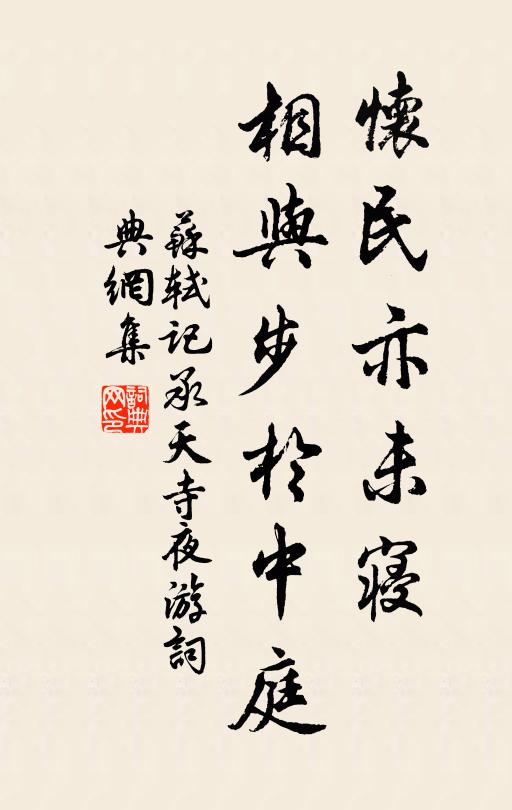 懷民亦未寢
相與步於中庭
蘇軾記承天寺夜游詞
典網集
詞典
网印